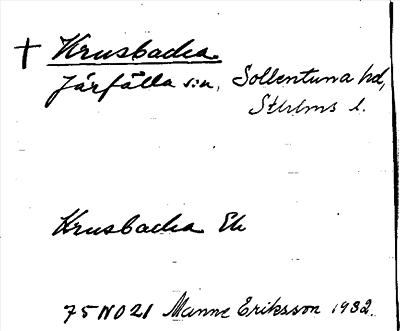 † Krusbacka
Järfälla sn, Sollentuna hd,
Sthlms l.
Krusbacka Ek
75 NO 21 Manne Eriksson 1932.